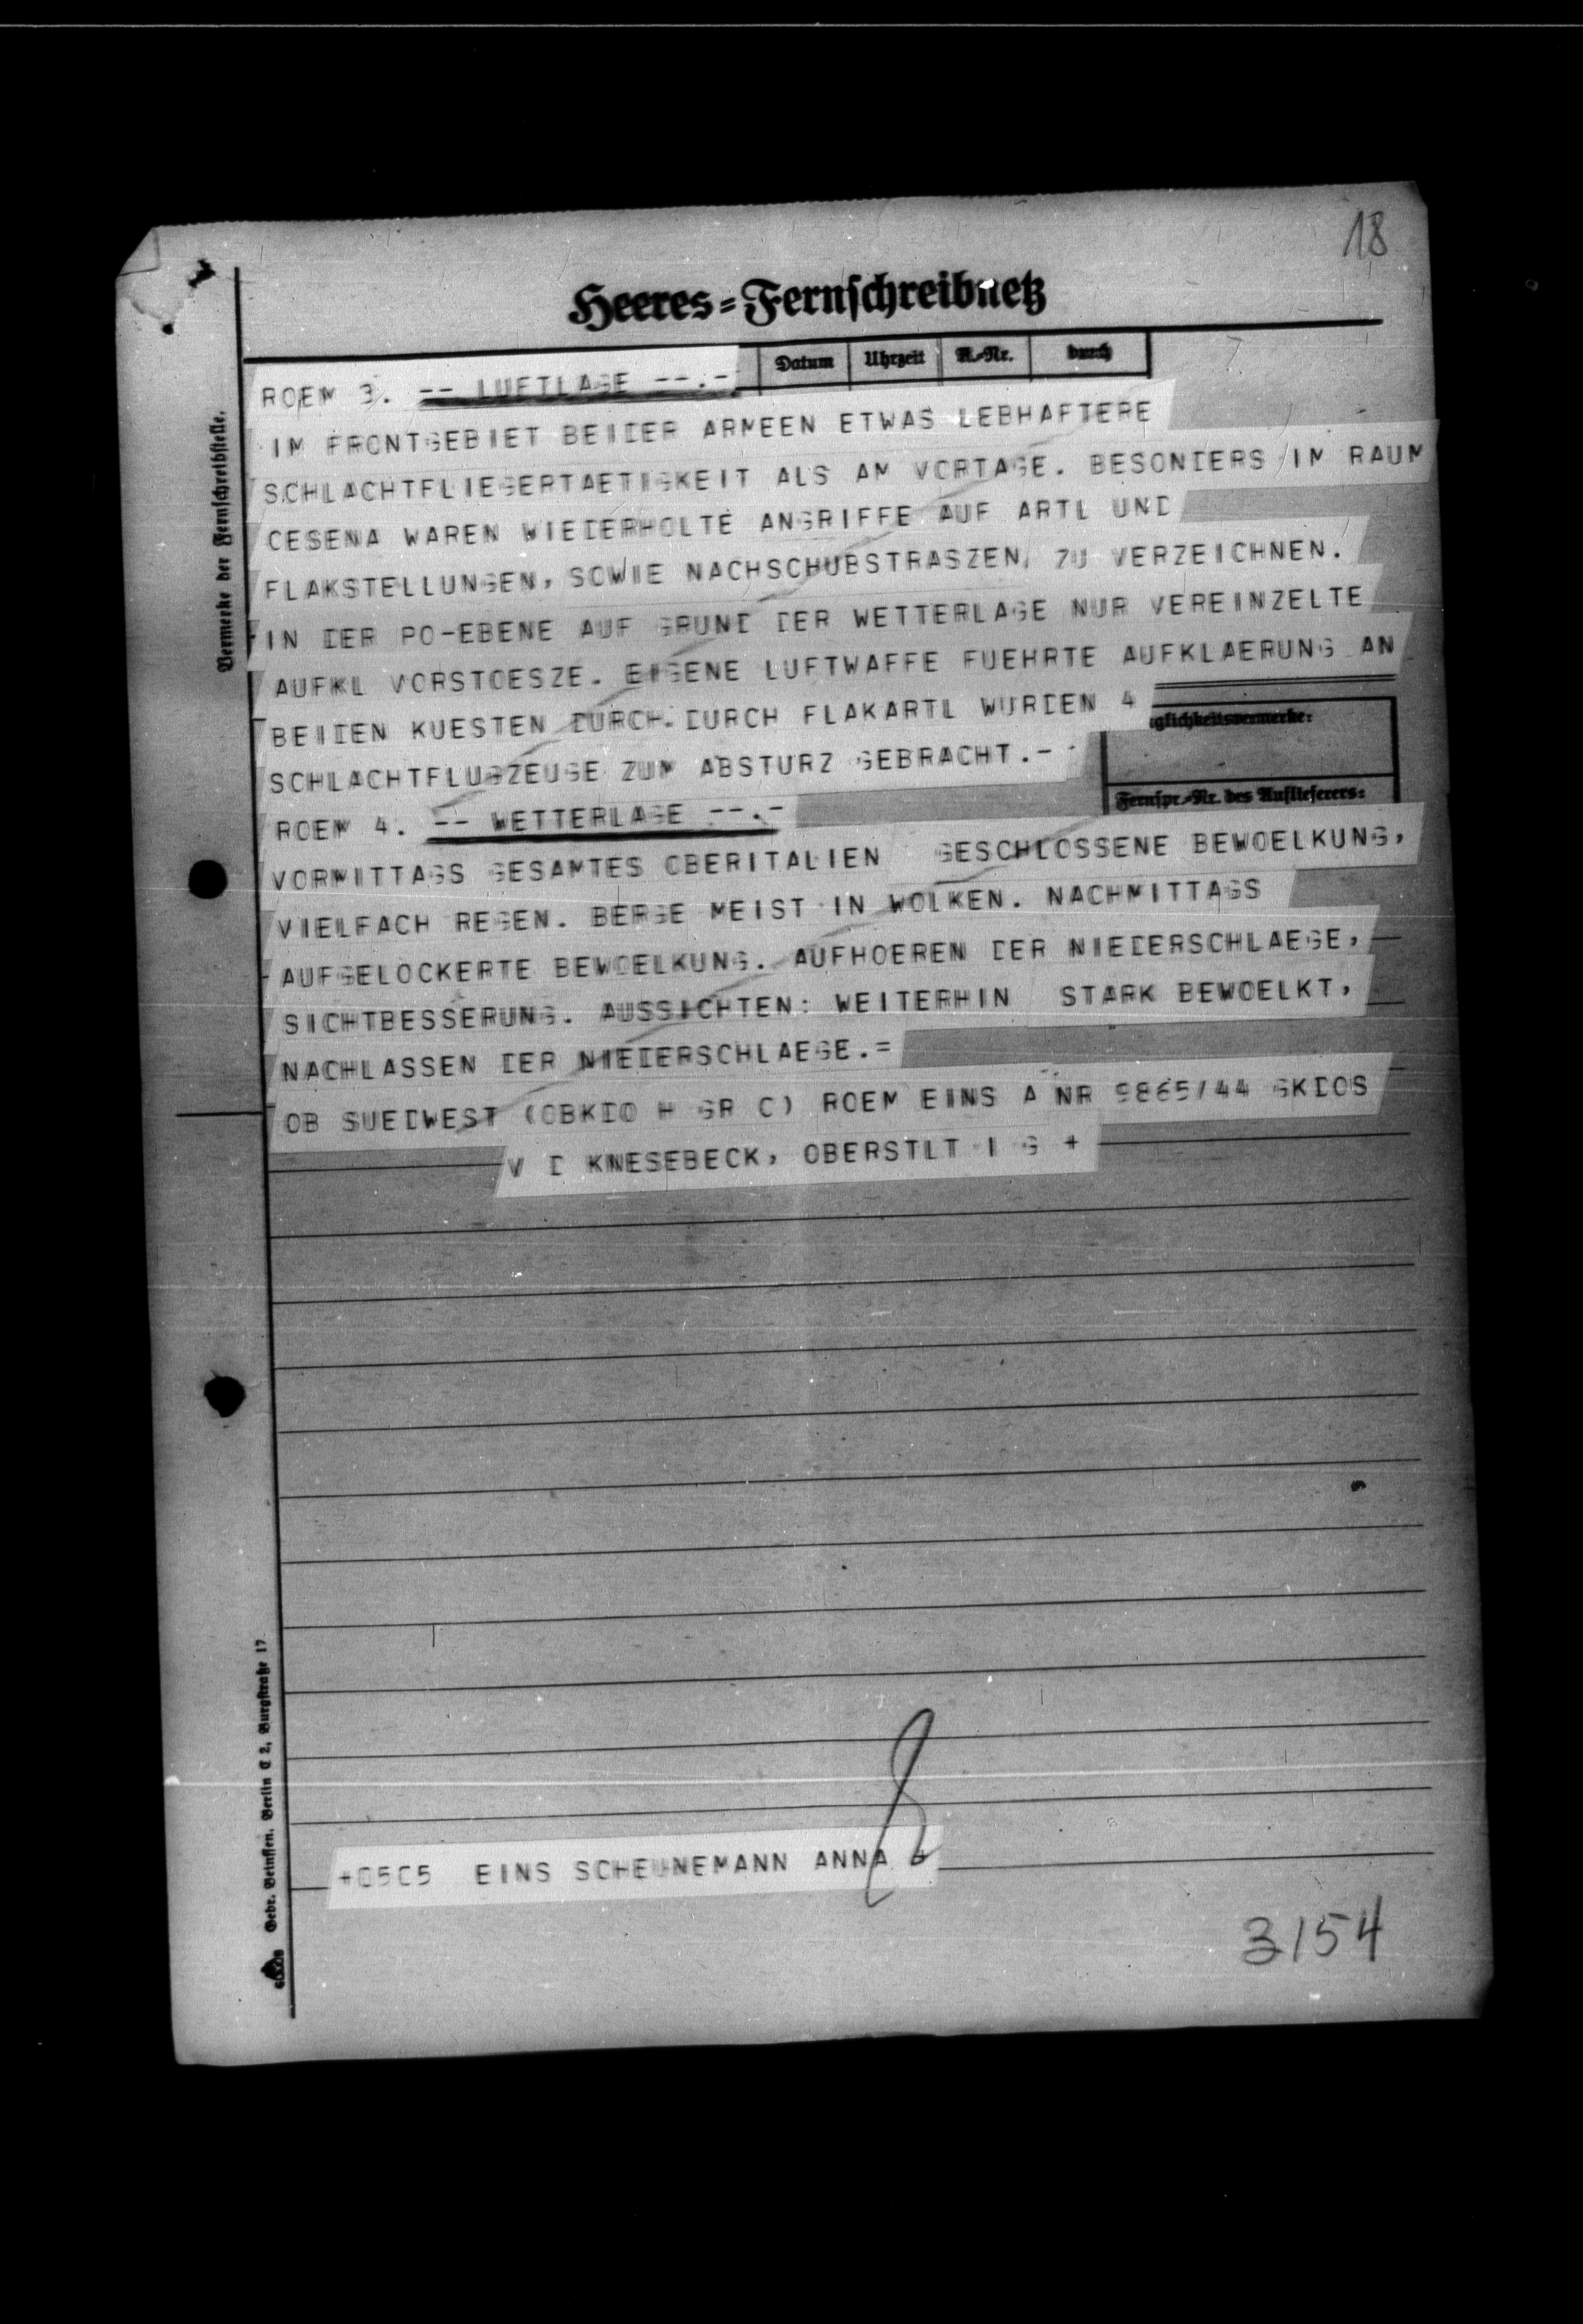 18
Heeres-Fernschreibnetz
Datum Uhrzeit A.-Nr. durch
ROEM 3. -- LUFTLAGE --.-
IM FRONTGEBIET BEIDER ARMEEN ETWAS LEBHAFTERE
SCHLACHTFLIEGERTAETIGKEIT ALS AM VORTAGE. BESONDERS IM RAUM
CESENA WAREN WIEDERHOLTE ANGRIFFE AUF ARTL UND
FLAKSTELLUNGEN, SOWIE NACHSCHUBSTRASZEN, ZU VERZEICHNEN.
IN DER PO-EBENE AUF GRUND DER WETTERLAGE NUR VEREINZELTE
AUFKL VORSTOESZE. EIGENE LUFTWAFFE FUEHRTE AUFKLAERUNG AN
BEIDEN KUESTEN DURCH. DURCH FLAKARTL WURDEN 4
SCHLACHTFLUGZEUGE ZUM ABSTURZ GEBRACHT.-
ROEM 4. -- WETTERLAGE --.-
VORMITTAGS GESAMTES OBERITALIEN GESCHLOSSENE BEWOELKUNG,
VIELFACH REGEN. BERGE MEIST IN WOLKEN. NACHMITTAGS
AUFGELOCKERTE BEWOELKUNG. AUFHOEREN DER NIEDERSCHLAEGE,
SICHTBESSERUNG. AUSSICHTEN: WEITERHIN STARK BEWOELKT,
NACHLASSEN DER NIEDERSCHLAEGE.=
OB SUEDWEST (OBKDO H GR C) ROEM EINS A NR 9865/44 GKDOS
V D KNESEBECK, OBERSTLT I G +
glichkeitsvermerke:
Fernspr.-Nr. des Auflieferers:
Vermerke der Fernschreibstelle.
+0505 EINS SCHEUNEMANN ANNA +
3154
Gebr. Beinssen. Berlin C 2, Burgstraße 17